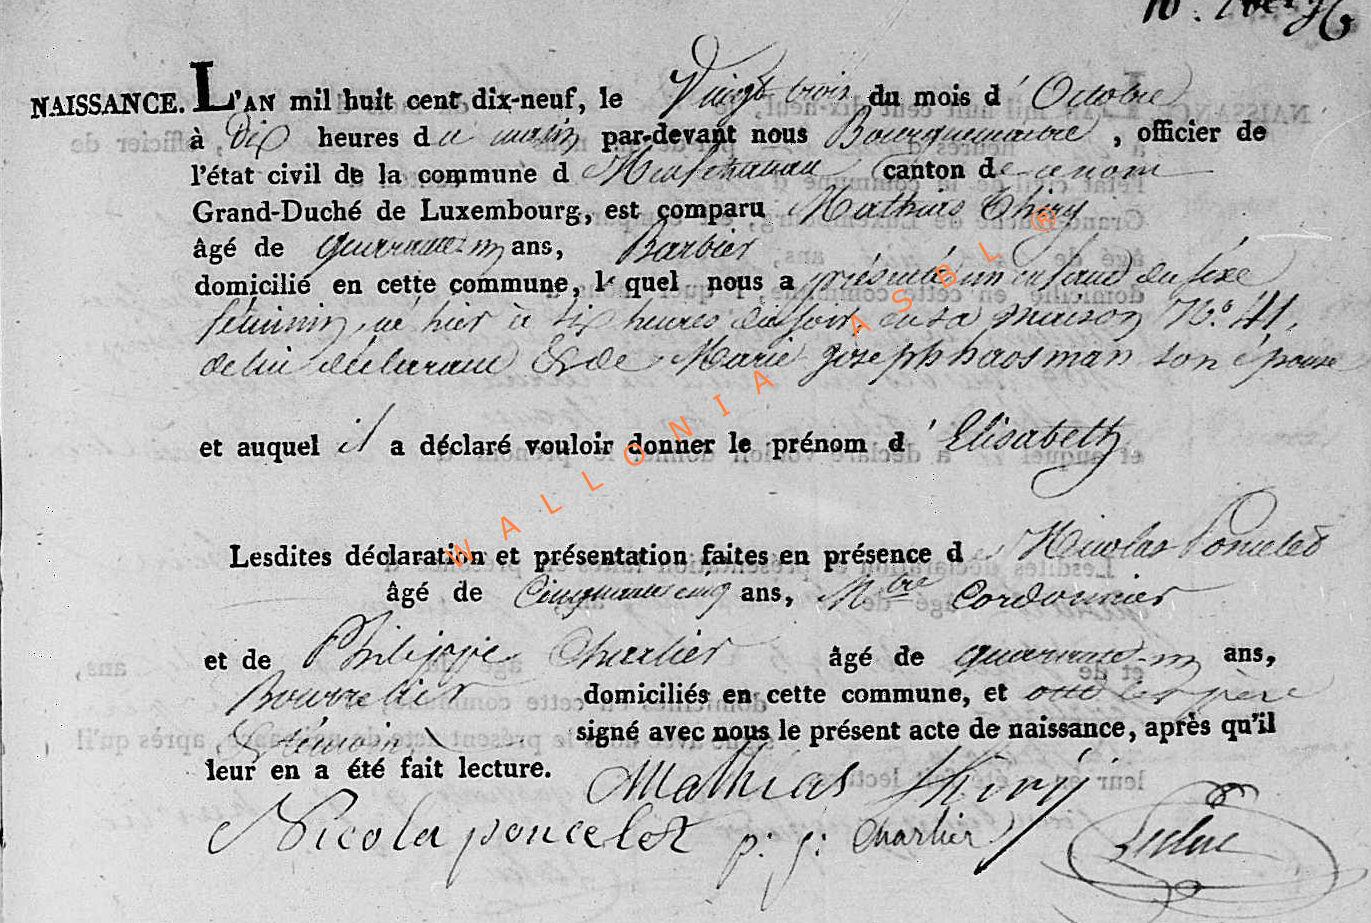 NAISSANCE. L'AN mil huit cent dix-neuf, le Vingt trois du mois d'Octobre
à Dix heures du matin par-devant nous Bourguemaitre, officier de
l'état civil de la commune d Neufchateau canton de ce nom
Grand-Duché de Luxembourg, est comparu Mathias Thiry
âgé de quarante un ans, Barbier
domicilié en cette commune, lequel nous a présenté un enfant du sexe
féminin, né hier à six heures du soir en sa maison N.º 41,
de lui déclarant & de Marie Joseph haosman son épouse
et auquel il a déclaré vouloir donner le prénom d'Elisabeth
Lesdites déclaration et présentation faites en présence de Nicolas Poncelet
âgé de Cinquante cinq ans, Mtre Cordonnier
et de Philippe Charlier âgé de quarante-un ans,
Bourrelier domiciliés en cette commune, et ont les père
& témoins signé avec nous le présent acte de naissance, après qu'il
leur en a été fait lecture.
Mathias thirÿ
Nicola poncelet p: j: Charlier
WALLONIA ASBL ®